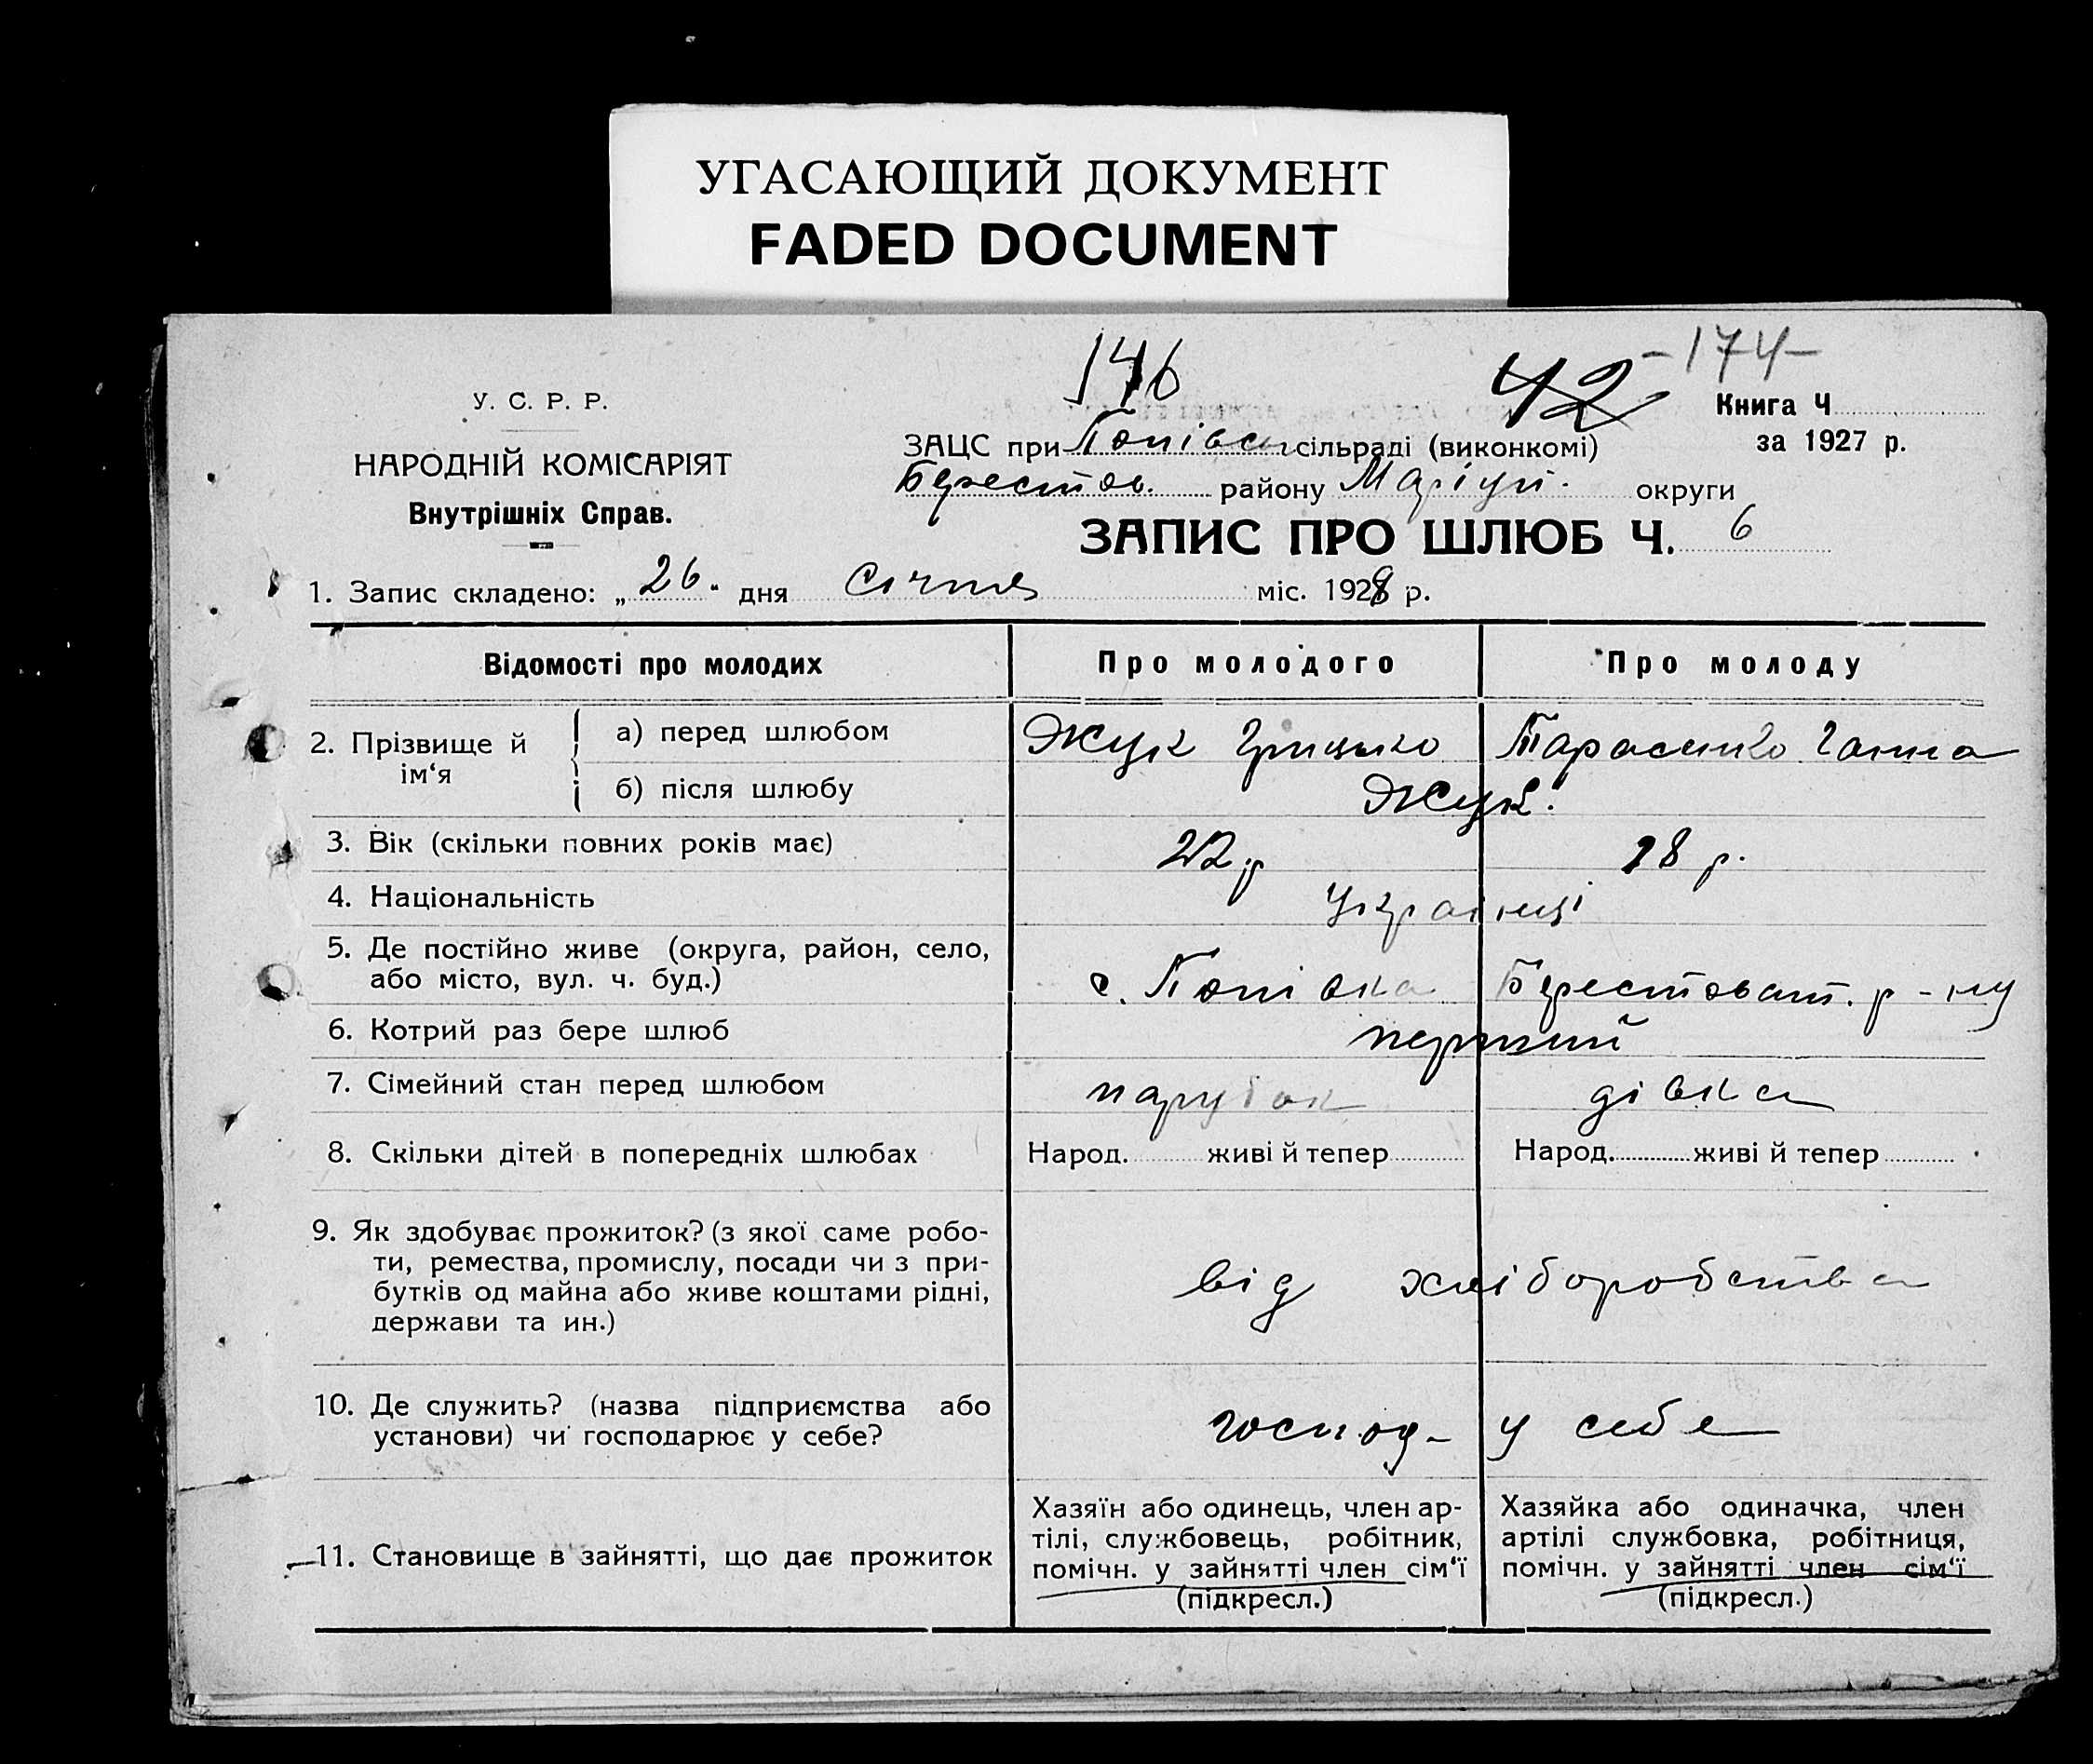 УГАСАЮЩИЙ ДОКУМЕНТ
FADED DOCUMENT
146 42 -174-
У. С. Р. Р.
НАРОДНІЙ КОМІСАРІЯТ
Внутрішніх Справ.
Книга Ч
за 1927 р.
ЗАЦС при Попівськ сільраді (виконкомі)
Берестов. району Маріуп. округи
ЗАПИС ПРО ШЛЮБ Ч. 6
1. Запис складено: „ 26 " дня Січня міс. 1928 р.
Відомості про молодих Про молодого Про молоду
2. Прізвище й ім‘я
а) перед шлюбом Жук Грицько Тарасенко Ганна
б) після шлюбу Жук.
3. Вік (скільки повних років має) 22 р 18 р.
4. Національність Українці
5. Де постійно живе (округа, район, село,
або місто, вул. ч. буд.) с. Попівка Берестоват. р-ну
6. Котрий раз бере шлюб перший
7. Сімейний стан перед шлюбом парубок дівка
8. Скільки дітей в попередніх шлюбах Народ. живі й тепер Народ. живі й тепер
9. Як здобуває прожиток? (з якої саме робо-
ти, ремества, промислу, посади чи з при-
бутків од майна або живе коштами рідні,
держави та ин.)
від хліборобства
10. Де служить? (назва підприємства або
установи) чи господарює у себе?
господ- у себе
11. Становище в зайнятті, що дає прожиток
Хазяїн або одинець, член ар-
тілі, службовець, робітник,
помічн. у зайнятті член сім‘ї
(підкресл.)
Хазяйка або одиначка, член
артілі службовка, робітниця,
помічн. у зайнятті член сім‘ї
(підкресл.)